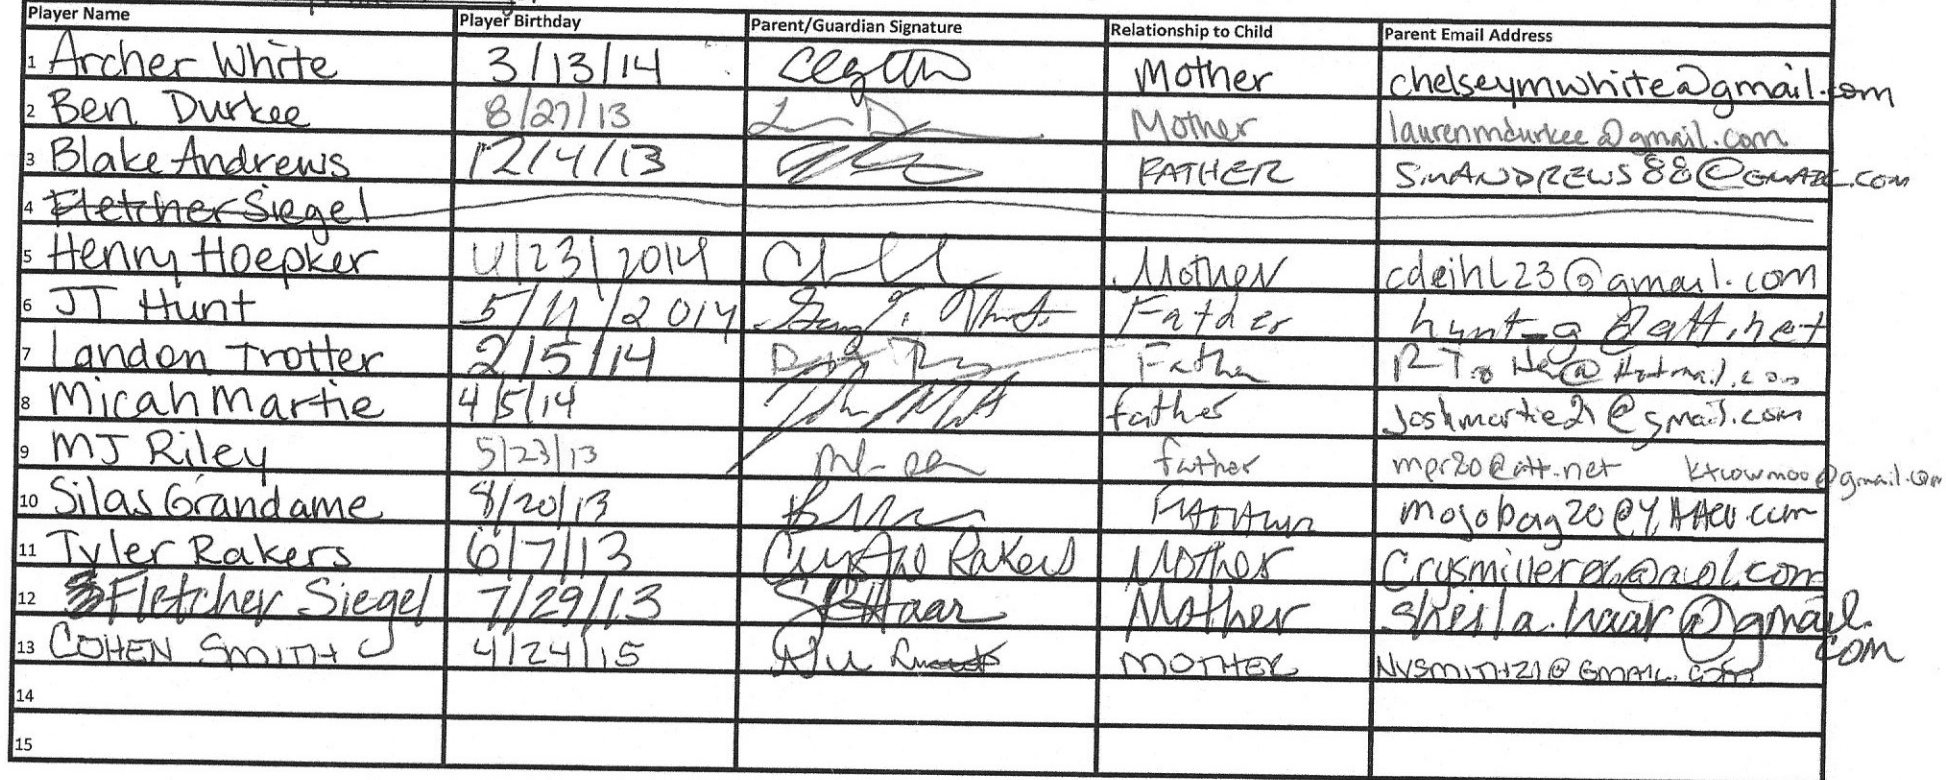 Player Name Player Birthday Parent/Guardian Signature Relationship to Child Parent Email Address
1 Archer White 3/13/14 Mother chelseymwhite@gmail.com
2 Ben Durkee 8/27/13 Mother laurenmdurkee@gmail.com
3 Blake Andrews 12/4/13 FATHER SMANDREWS88@GMAIL.COM
4 Fletcher Siegel
5 Henny Hoepker 4/23/2014 Mother cdeihl23@gmail.com
6 JT Hunt 5/11/2014 Father hunt_g@att.net
7 Landon Trotter 2/5/14 Father
8 Micah Martie 4/5/14 father Joshmartie21@gmail.com
9 MJ Riley 5/23/13 father mpr20@att.net ktcowmoo@gmail.com
10 Silas Grandame 8/20/13 mojobag20@YAHOO.com
11 Tyler Rakers 6/7/13 Rakers Mother
12 Fletcher Siegel 7/29/13 SHaar Mother sheila.haar@gmail.com
13 COHEN SMITH 4/24/15 MOTHER NVSMITH21@GMAIL.COM
14
15